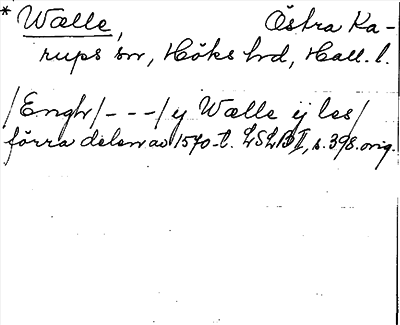 * Wælle, Östra Ka-
rups sn, Höks hd, Hall. l.
/Engh/---/ y Wælle ij les/
förra delen av 1570-t. LSLB II, s. 398. orig.